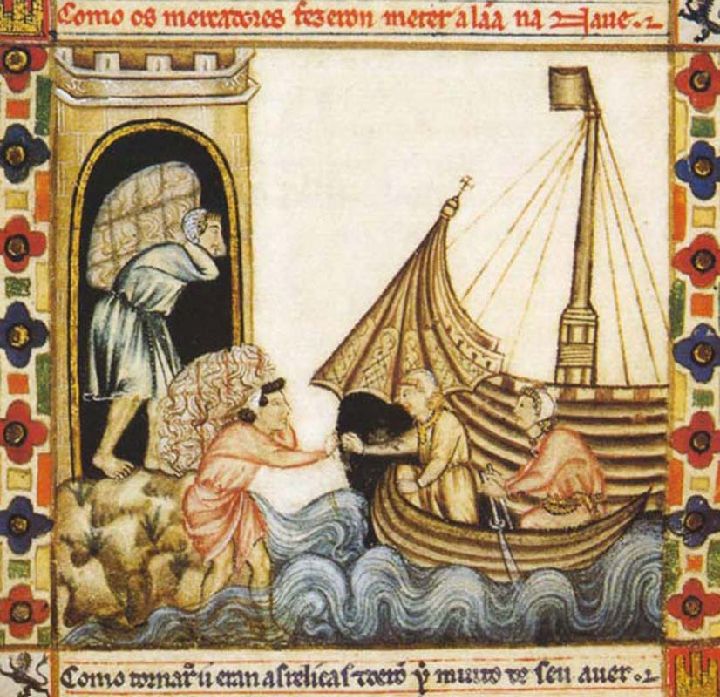 Como os mercadores fezeron meter a lãa na Naue.
Como tornar̃ u eran as relicas ⁊ derõ y muito de seu auer.